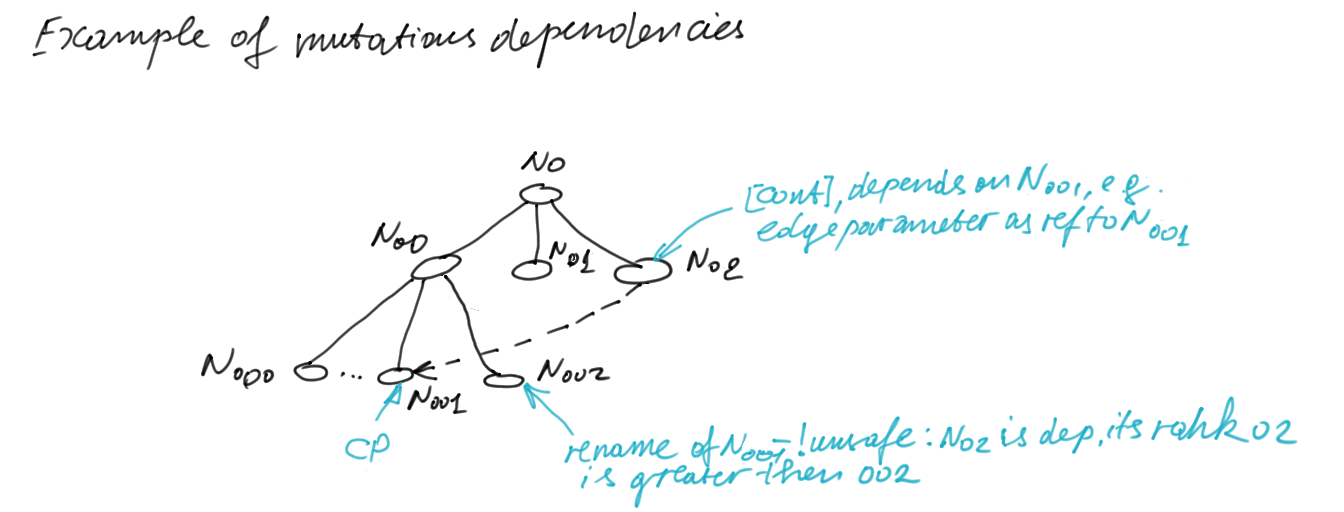 Example of mutations dependencies
N0
[cont], depends on N001, e.g.
edge parameter as ref to N001
N00
N01
N02
N000
...
N002
N001
CP
rename of N001 - !unsafe: N02 is dep, its rank 02
is greater then 002